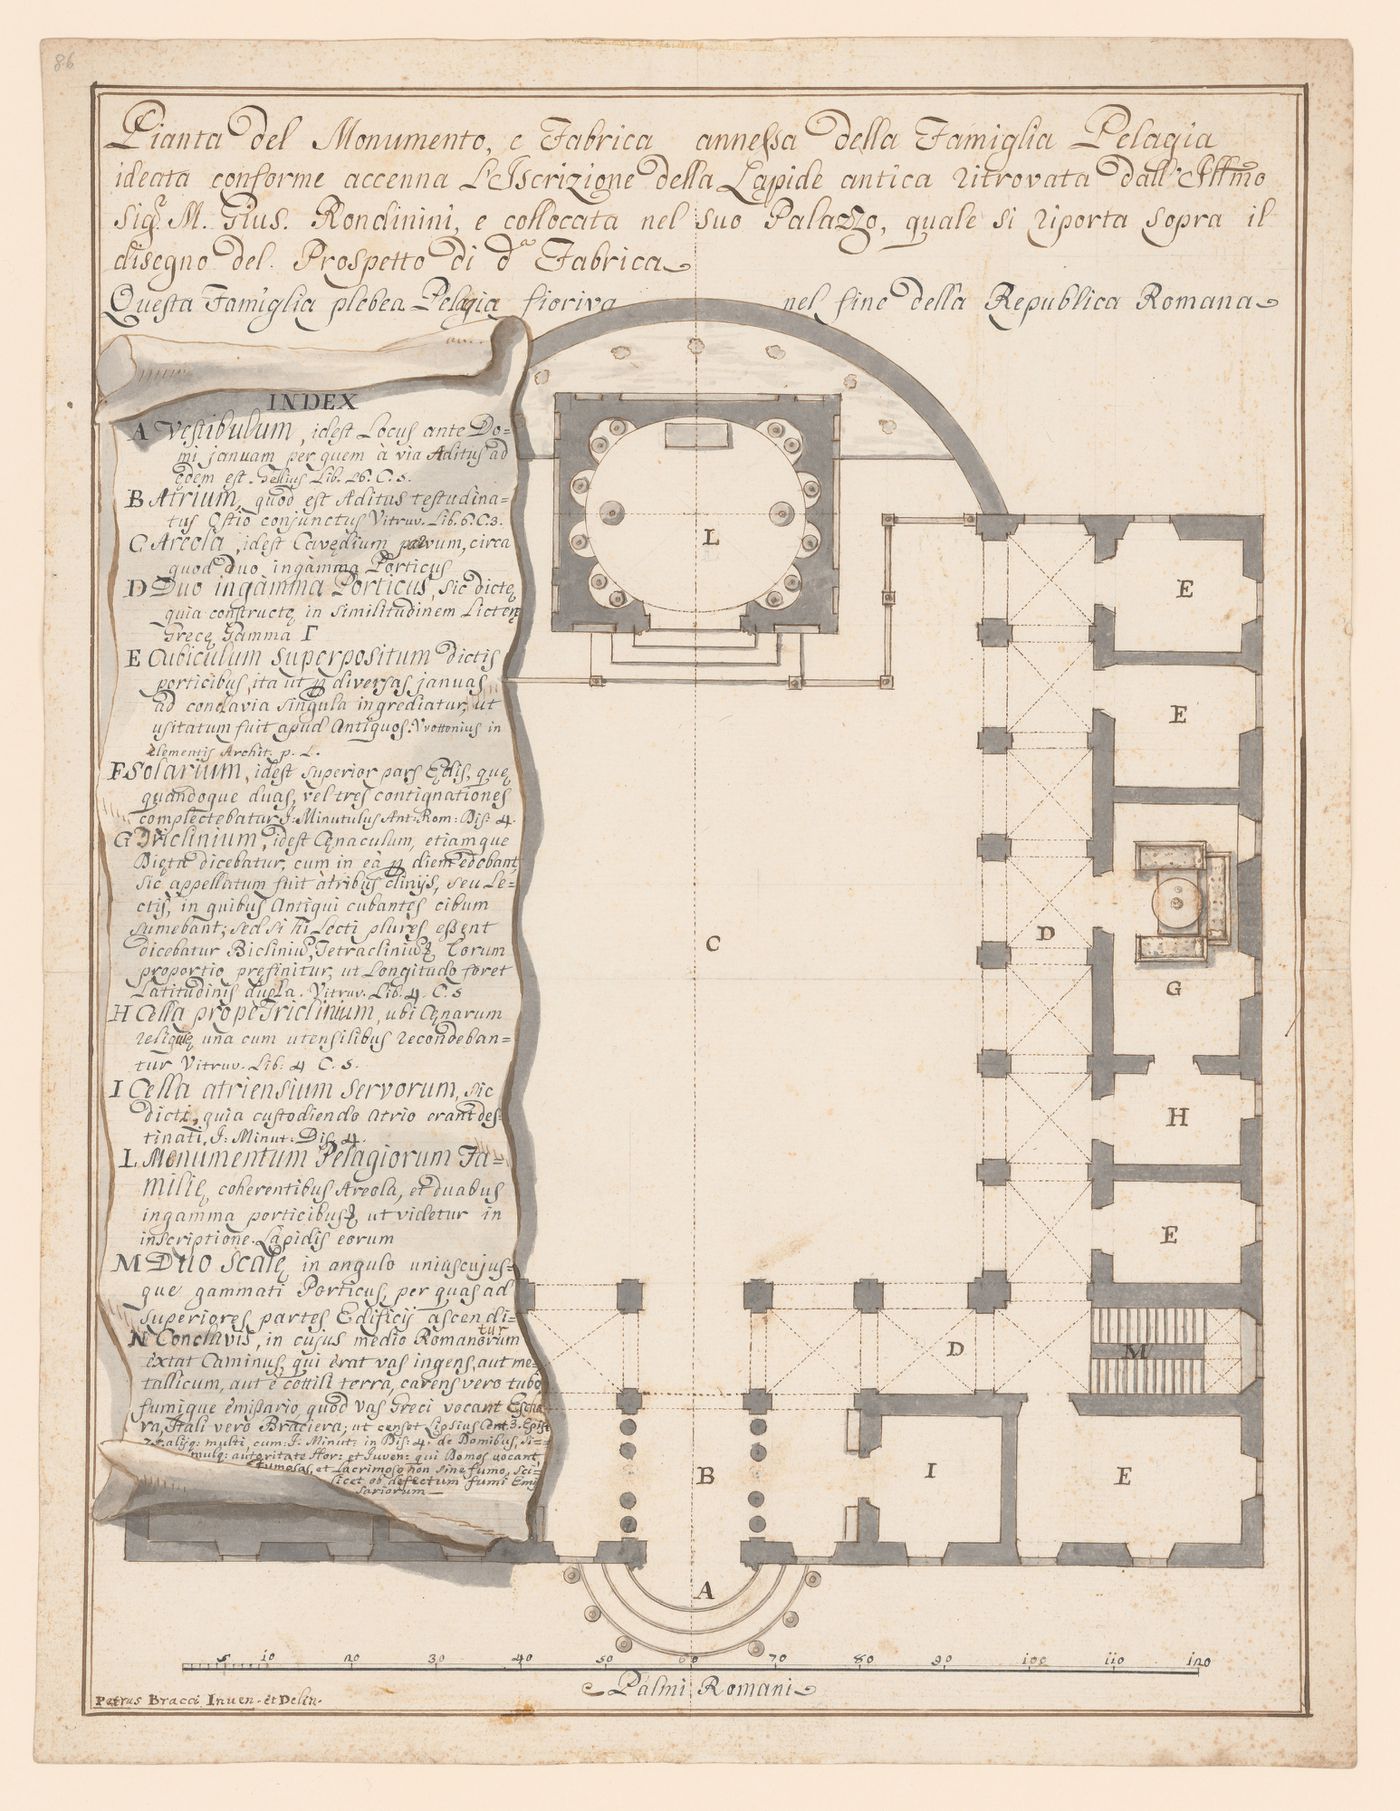 86
Pianta del Monumento, e Fabrica annessa della Famiglia Pelagia
ideata conforme accenna l'Iscrizione della Lapide antica ritrovata dall' Illmo
Sigr M. Gius. Rondinini, e collocata nel suo Palazzo, quale si riporta sopra il
disegno del Prospetto di da Fabrica
Questa Famiglia plebea Pelagia fioriva nel fine della Republica Romana
INDEX
A Vestibulum, idest Locus ante Do=
mi januam per quem à via Aditus ad
Ędem est. Gellius Lib. 16. C. 5.
B Atrium, quod est Aditus testudina=
tus Ostio conjunctus Vitruv. Lib. 6. C. 3.
C Areola, idest Cavędium parvum, circa
quod duo ingamma Porticus
D Duo ingamma Porticus, sic dictę
quia constructę in similitudinem Licterę
Gręcę Gamma Γ
E Cubiculum superpositum dictis
porticibus, ita ut p diversas januas
ad conclavia singula ingrediatur, ut
usitatum fuit apud Antiquos. Vvottonius in
Elementis Archit. p. 2.
F Solarium, idest superior pars Ędis, quę
quandoque duas, vel tres contignationes
complectebatur J. Minutulus Ant: Rom: Dis: 4.
G Triclinium, idest Cęnaculum, etiamque
Dięta dicebatur, cum in eà p diem edebant,
sic appellatum fuit à tribus clinijs, seu Le=
ctis, in quibus Antiqui cubantes cibum
sumebant; sed si hi Lecti plures essent
dicebatur Biclinium, Tetraclinium; Eorum
proportio prefinitur, ut Longitudo foret
Latitudinis dupla. Vitruv. Lib. 4. C. 5
H Cella prope Triclinium, ubi Cęnarum
reliquię una cum utensilibus recondeban=
tur Vitruv. Lib: 4 C. 5.
I Cella atriensium servorum, sic
dicti, quia custodiendo Atrio erant des=
tinati, J: Minut: Dis: 4.
L Monumentum Pelagiorum Fa=
milię coherentibus Areola, et duabus
ingamma porticibusq, ut videtur in
inscriptione Lapidis eorum
M Duo Scalę in angulo uniuscujus=
que gammati Porticus, per quas ad
superiores partes Edificij ascendi=
tur
N Conclavis, in cujus medio Romanorum
extat Caminus, qui erat vas ingens, aut me=
tallicum, aut è cottili terra, carens vero tubo
fumique emissario, quod vas Greci vocant Escha=
ra, Itali vero Braciera; ut censet Lipsius Cent. 3. Epist.
alisq: multi, cum J: Minut: in Dis: 4. de Domibus, si=
mulq: autoritate Hor: et Juven: qui Domos vocant,
fumosas, et Lacrimoso non sine fumo, sci=
licet ob defectum fumi Emis
sariorum
L
E
E
C
D
G
H
E
D
M
B
I
E
A
5 10 20 30 40 50 60 70 80 90 100 110 120
Palmi Romani
Petrus Bracci Inven. et Delin.